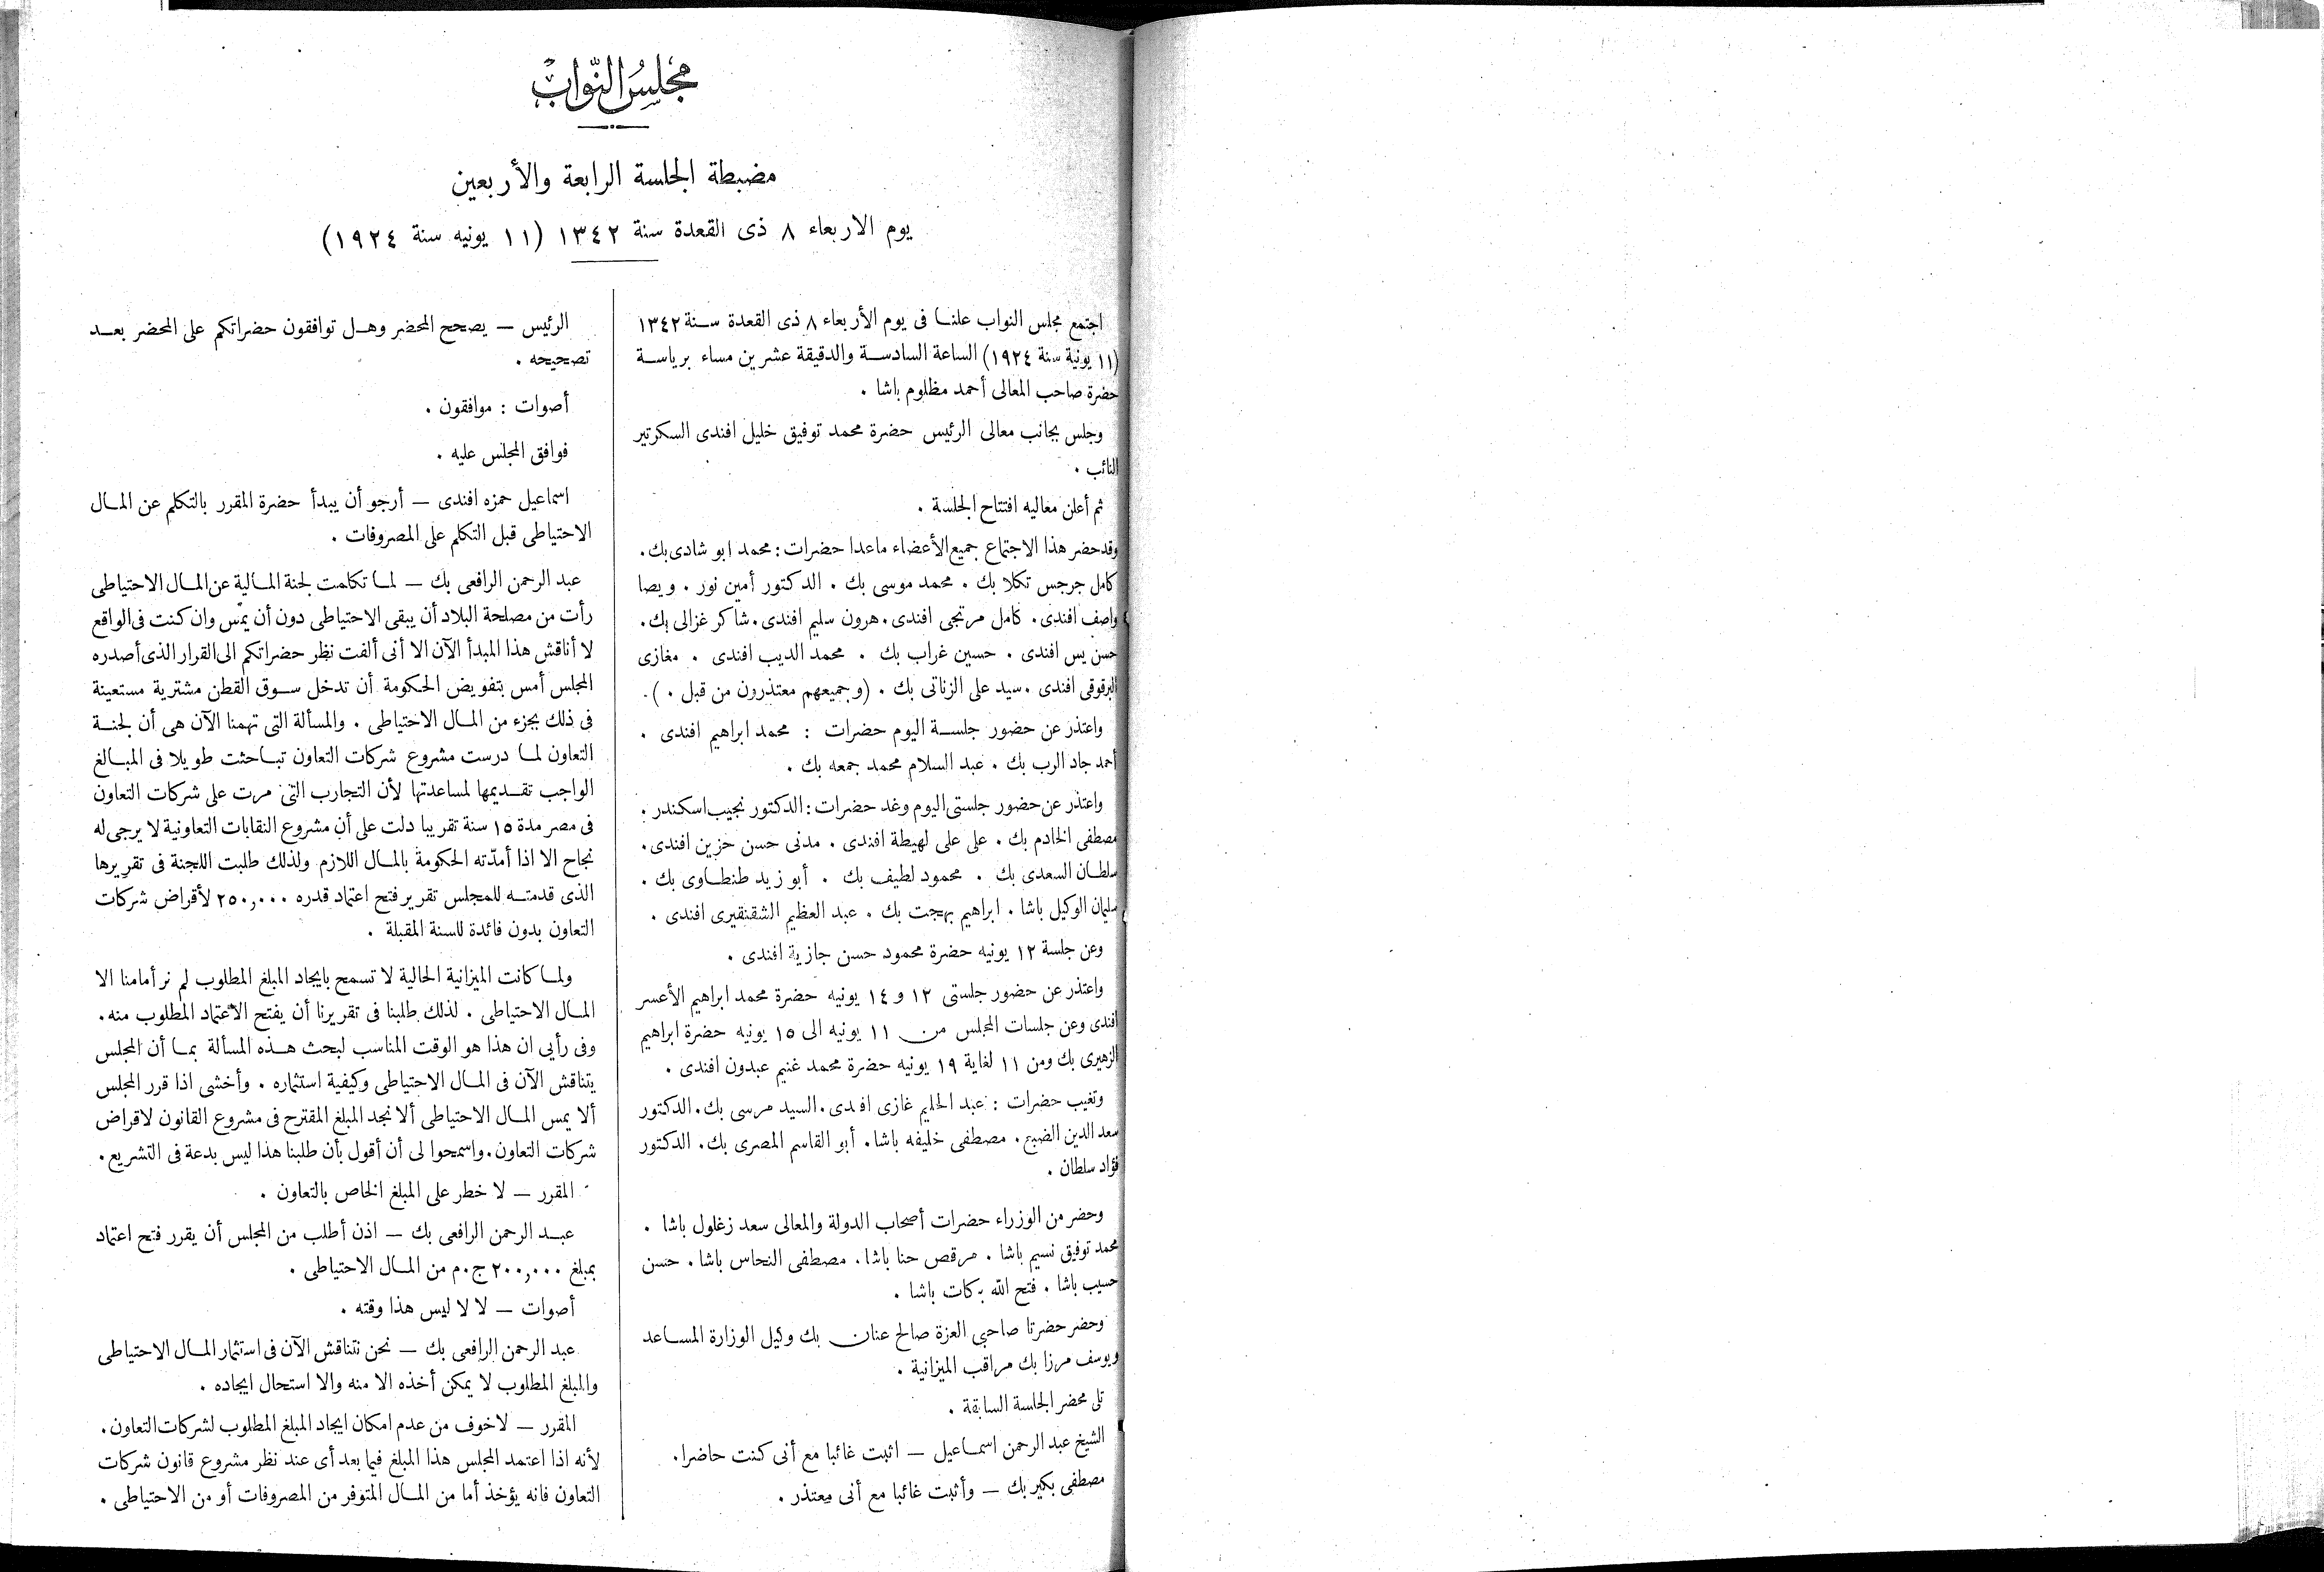 مجلس النواب
مضبطة الجلسة الرابعة والأربعين
يوم الاربعاء ٨ ذى القعدة سنة ١٣٤٢ (١١ يونيه سنة ١٩٢٤)
اجتمع مجلس النواب علنا فى يوم الأربعاء ٨ ذى القعدة سنة ١٣٤٢
(١١ يونية سنة ١٩٢٤) الساعة السادسة والدقيقة عشرين مساء برياسة
حضرة صاحب المعالى أحمد مظلوم باشا .
وجلس بجانب معالى الرئيس حضرة محمد توفيق خليل افندى السكرتير
النائب .
ثم أعلن معاليه افتتاح الجلسة .
وقد حضر هذا الاجتماع جميع الأعضاء ماعدا حضرات : محمد ابو شادى بك .
كامل جرجس تكلا بك . محمد موسى بك . الدكتور أمين نور . ويصا
واصف افندى . كامل مرتجى افندى . هرون سليم افندى . شاكر غزالى بك .
حسن يس افندى . حسين غراب بك . محمد الديب افندى . مغازى
البرقوقى افندى . سيد على الزناتى بك . (وجميعهم معتذرون من قبل . ) .
واعتذر عن حضور جلسة اليوم حضرات : محمد ابراهيم افندى .
أحمد جاد الرب بك . عبد السلام محمد جمعه بك .
واعتذر عن حضور جلستى اليوم وغد حضرات : الدكتور نجيب اسكندر .
مصطفى الخادم بك . على على لهيطة افندى . مدنى حسن حزين افندى .
سلطان السعدى بك . محمود لطيف بك . أبو زيد طنطاوى بك .
سليمان الوكيل باشا . ابراهيم بهجت بك . عبد العظيم الشقنقيرى افندى .
وعن جلسة ١٢ يونيه حضرة محمود حسن جازية افندى .
واعتذر عن حضور جلستى ١٢ و ١٤ يونيه حضرة محمد ابراهيم الأعسر
افندى وعن جلسات المجلس من ١١ يونيه الى ١٥ يونيه حضرة ابراهيم
الزهيرى بك ومن ١١ لغاية ١٩ يونيه حضرة محمد غنيم عبدون افندى .
وتغيب حضرات : عبد الحليم غازى افندى . السيد مرسى بك . الدكتور
سعد الدين الضبع . مصطفى خليفه باشا . أبو القاسم المصرى بك . الدكتور
فؤاد سلطان .
وحضر من الوزراء حضرات أصحاب الدولة والمعالى سعد زغلول باشا .
محمد توفيق نسيم باشا . مرقص حنا باشا . مصطفى النحاس باشا . حسن
حسيب باشا . فتح الله بركات باشا .
وحضر حضرتا صاحبى العزة صالح عنان بك وكيل الوزارة المساعد
ويوسف مرزا بك مراقب الميزانية .
تلى محضر الجلسة السابقة .
الشيخ عبد الرحمن اسماعيل — اثبت غائبا مع أنى كنت حاضرا .
مصطفى بكير بك — وأثبت غائبا مع أنى معتذر .
الرئيس — يصحح المحضر وهل توافقون حضراتكم على المحضر بعد
تصحيحه .
أصوات : موافقون .
فوافق المجلس عليه .
اسماعيل حمزه افندى — أرجو أن يبدأ حضرة المقرر بالتكلم عن المال
الاحتياطى قبل التكلم على المصروفات .
عبد الرحمن الرافعى بك — لما تكلمت لجنة المالية عن المال الاحتياطى
رأت من مصلحة البلاد أن يبقى الاحتياطى دون أن يمّس وان كنت فى الواقع
لا أناقش هذا المبدأ الآن الا أنى ألفت نظر حضراتكم الى القرار الذى أصدره
المجلس أمس بتفويض الحكومة أن تدخل سوق القطن مشترية مستعينة
فى ذلك بجزء من المال الاحتياطى . والمسألة التى تهمنا الآن هى أن لجنة
التعاون لما درست مشروع شركات التعاون تباحثت طويلا فى المبالغ
الواجب تقديمها لمساعدتها لأن التجارب التى مرت على شركات التعاون
فى مصر مدة ١٥ سنة تقريبا دلت على أن مشروع النقابات التعاونية لا يرجى له
نجاح الا اذا أمدّته الحكومة بالمال اللازم ولذلك طلبت اللجنة فى تقريرها
الذى قدمته للمجلس تقرير فتح اعتماد قدره ٢٥٠,٠٠٠ لأقراض شركات
التعاون بدون فائدة للسنة المقبلة .
ولما كانت الميزانية الحالية لا تسمح بايجاد المبلغ المطلوب لم نر أمامنا الا
المال الاحتياطى . لذلك طلبنا فى تقريرنا أن يفتح الاعتماد المطلوب منه .
وفى رأيى ان هذا هو الوقت المناسب لبحث هذه المسألة بما أن المجلس
يتناقش الآن فى المال الاحتياطى وكيفية استثماره . وأخشى اذا قرر المجلس
ألا يمس المال الاحتياطى ألا نجد المبلغ المقترح فى مشروع القانون لاقراض
شركات التعاون . واسمحوا لى أن أقول بأن طلبنا هذا ليس بدعة فى التشريع .
المقرر — لا خطر على المبلغ الخاص بالتعاون .
عبد الرحمن الرافعى بك — اذن أطلب من المجلس أن يقرر فتح اعتماد
بمبلغ ٢٠٠,٠٠٠ ج.م من المال الاحتياطى .
أصوات — لا لا ليس هذا وقته .
عبد الرحمن الرافعى بك — نحن نتناقش الآن فى استثمار المال الاحتياطى
والمبلغ المطلوب لا يمكن أخذه الا منه والا استحال ايجاده .
المقرر — لاخوف من عدم امكان ايجاد المبلغ المطلوب لشركات التعاون .
لأنه اذا اعتمد المجلس هذا المبلغ فيما بعد أى عند نظر مشروع قانون شركات
التعاون فانه يؤخذ أما من المال المتوفر من المصروفات أو من الاحتياطى .